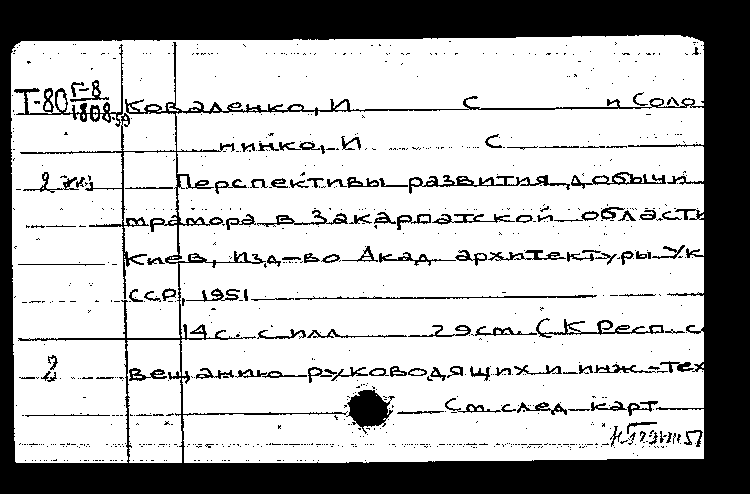 Т-80 Г-8
1808-59
Коваленко, И С и Соло-
нинко, И С
2 экз
Перспективы развития добычи
трамора в Закарпатской области
Киев, Изд-во Акад архитектуры Ук
ССР, 1951
14 с. с илл 29 см. (К Респ с
2
вещанию руководящих и инж.-тех
См. след карт